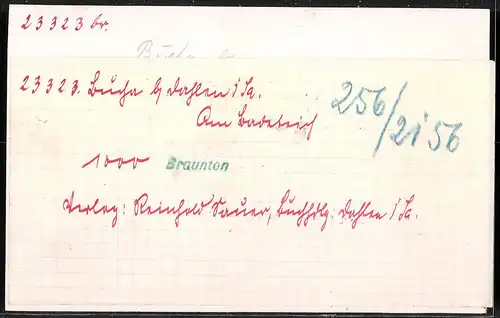 23323 br.
23323. Bucha b/ Dahlen i/Sa.
Am Badeteich
256/2156
1000 Braunton
Verlag: Reinhold Sauer, Buchhdlg: Dahlen i/Sa.